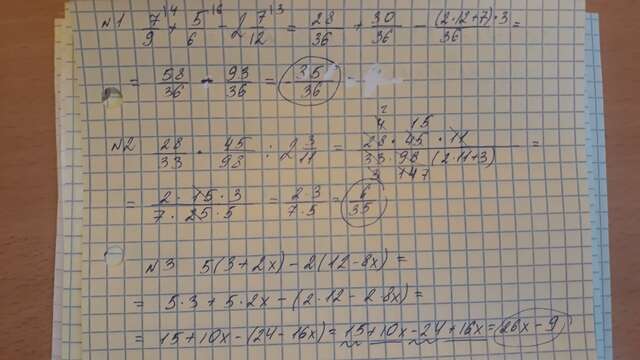 N1 7/9 + 5/6 - 2 7/12 = 28/36 + 30/36 - (2·12+7)·3/36 =
= 58/36 - 93/36 = - 35/36
N2 28/33 · 45/98 : 2 3/11 = 28·45·11/33·98(2·11+3) =
= 2·15·3/7·25·5 = 2 3/7·5 = 6/35
N3 5(3+2x)-2(12-8x)=
= 5·3+5·2x-(2·12-2·8x)=
= 15+10x-(24-16x)=15+10x-24+16x=26x-9